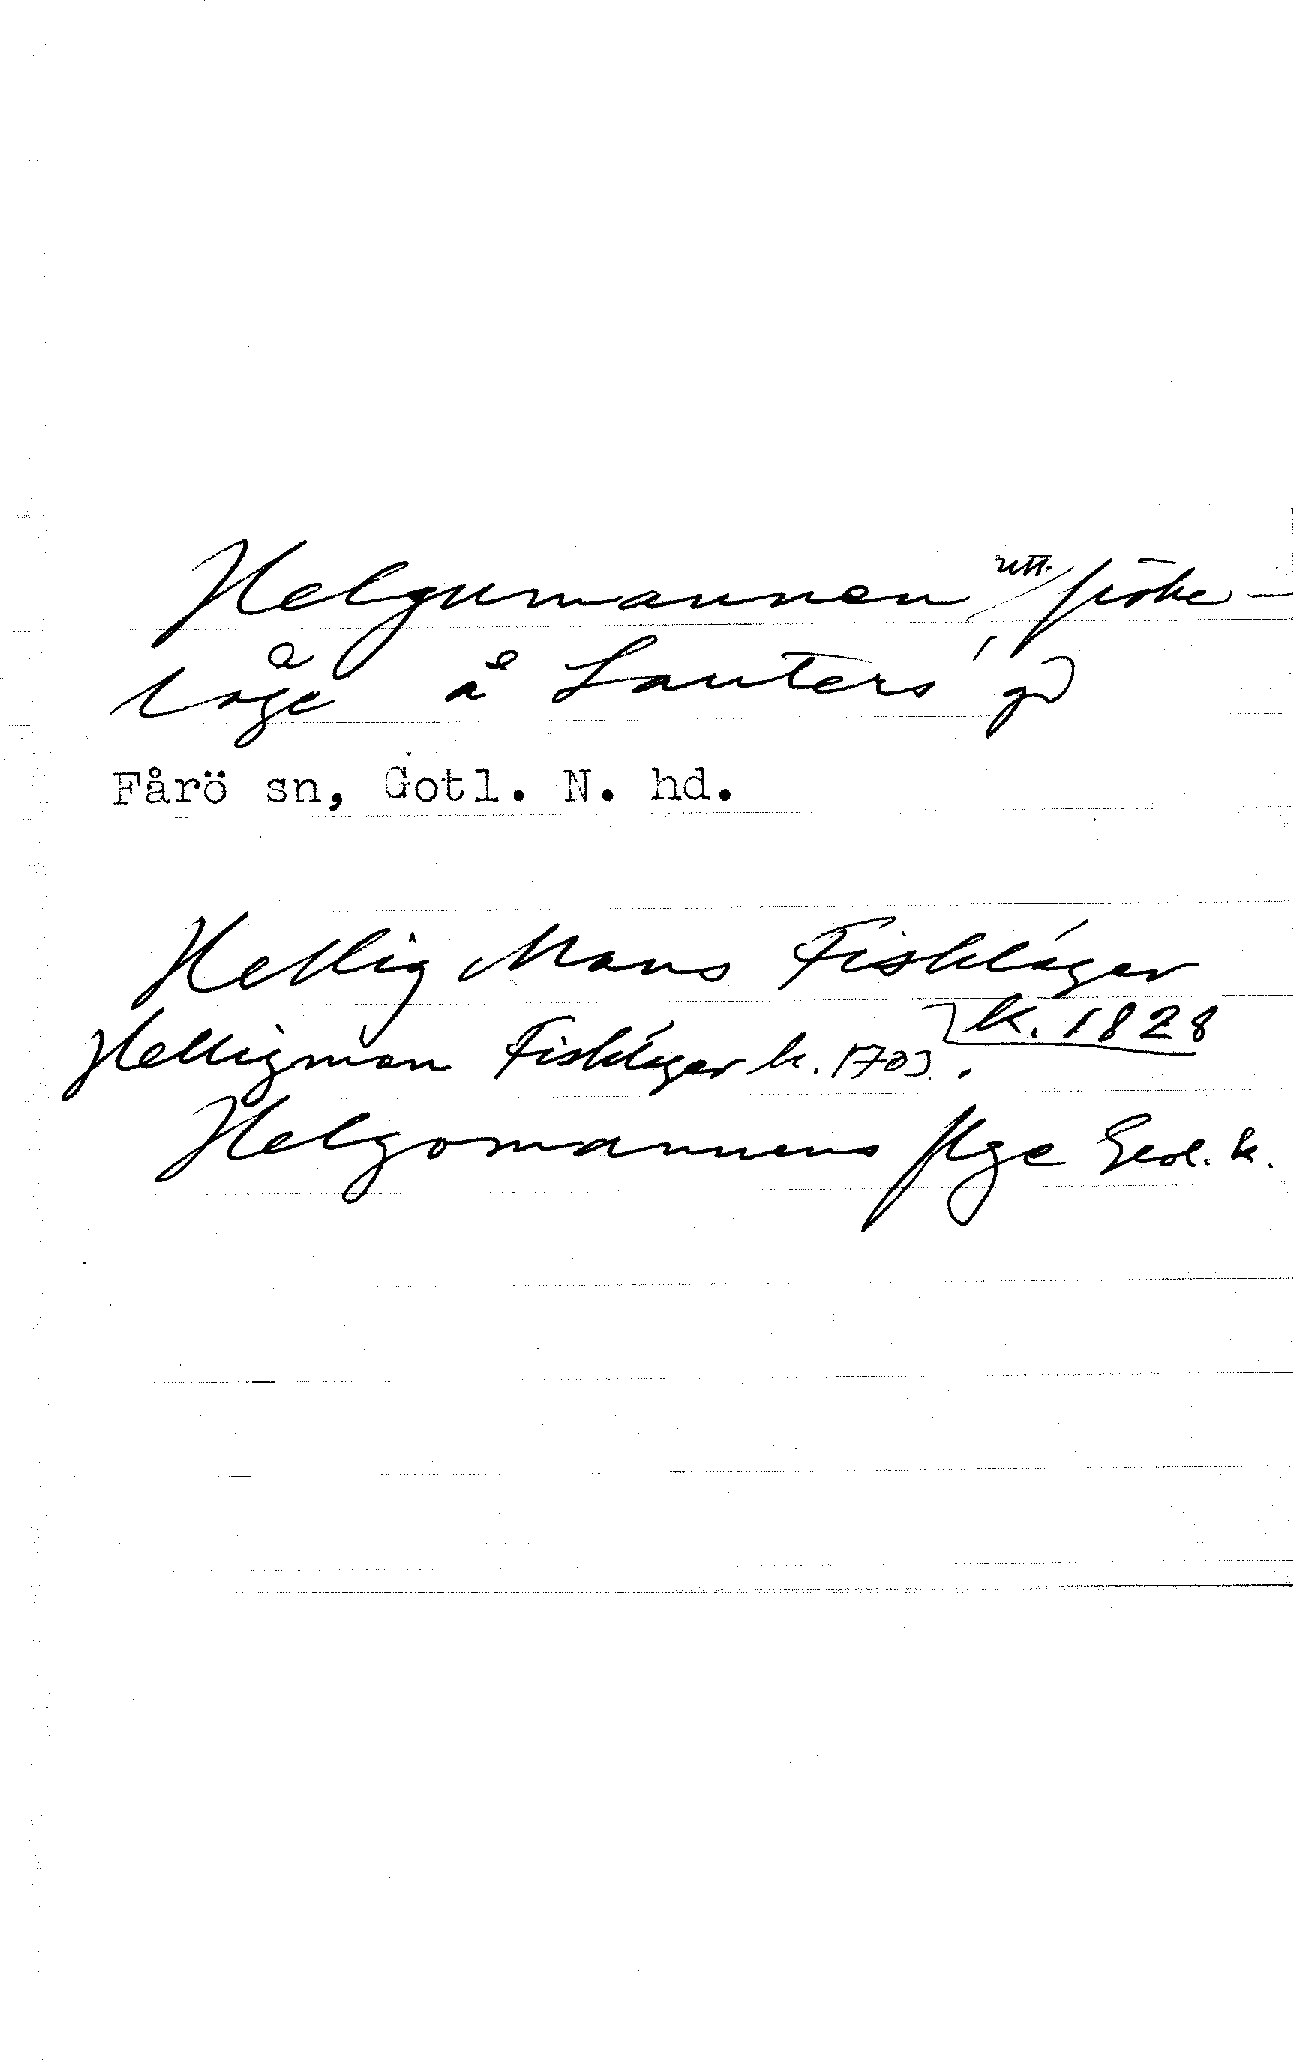 Helgumannen, utt. fiske-
läge å Lauters gd
Fårö sn, Gotl. N. hd.
Hellig Mans Fiskläger
k. 1828
Helligman Fiskläger k. 1703.
Helgomannens flge Geol. k.